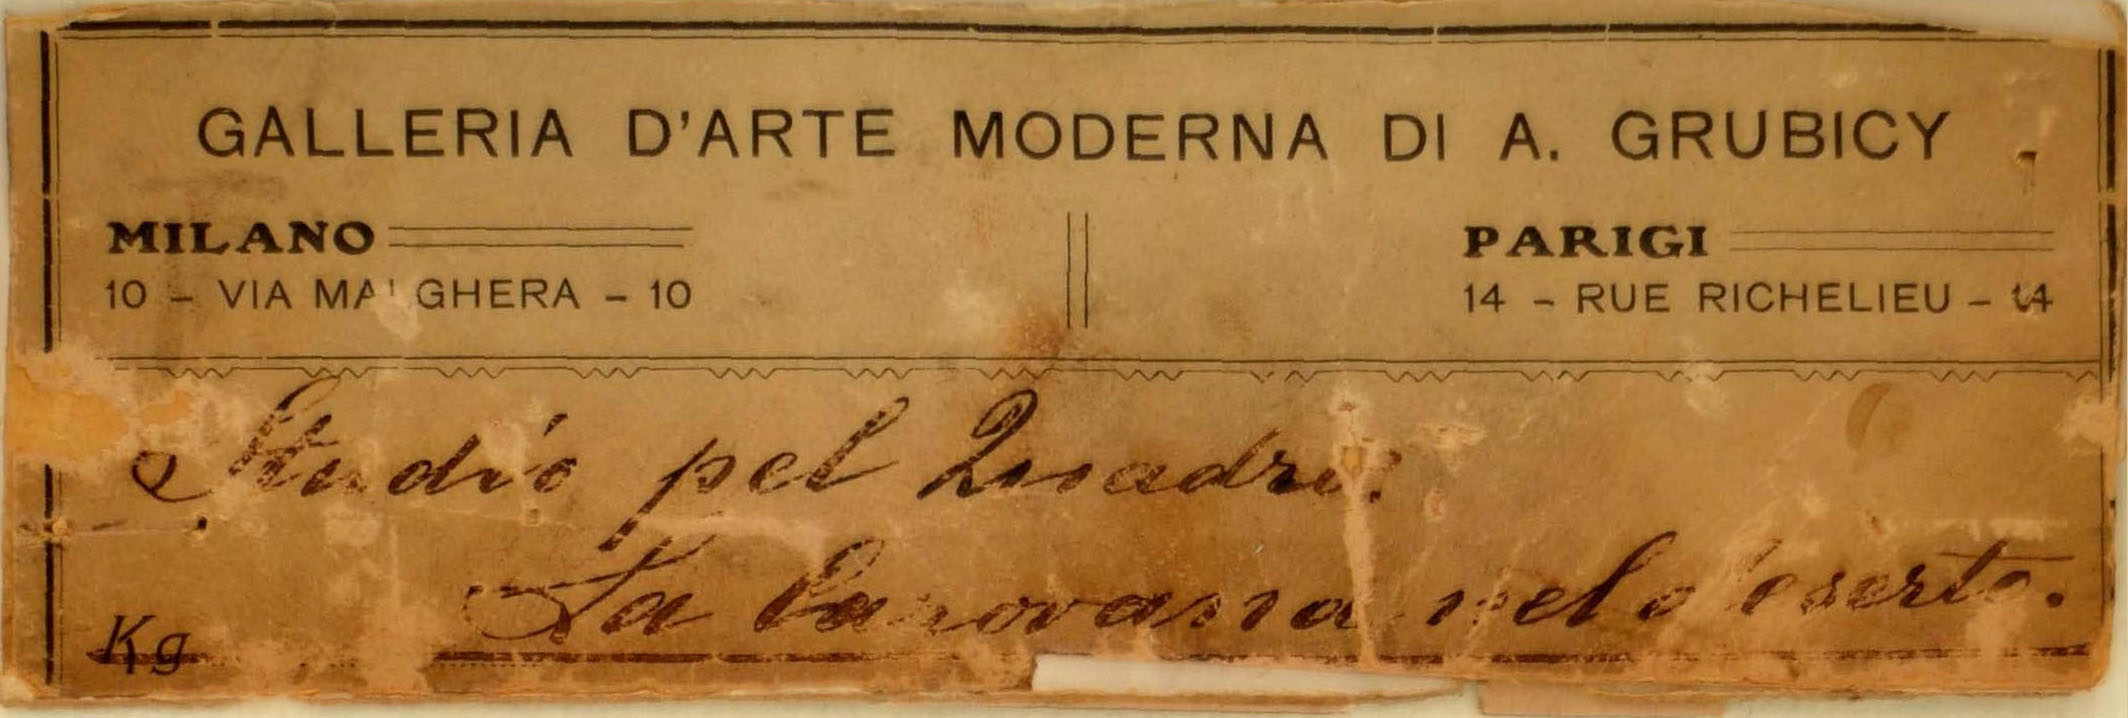 GALLERIA D'ARTE MODERNA DI A. GRUBICY
MILANO
10 – VIA MALGHERA – 10
PARIGI
14 – RUE RICHELIEU – 14
Studio pel Quadro:
La Carovana nel deserto.
Kg